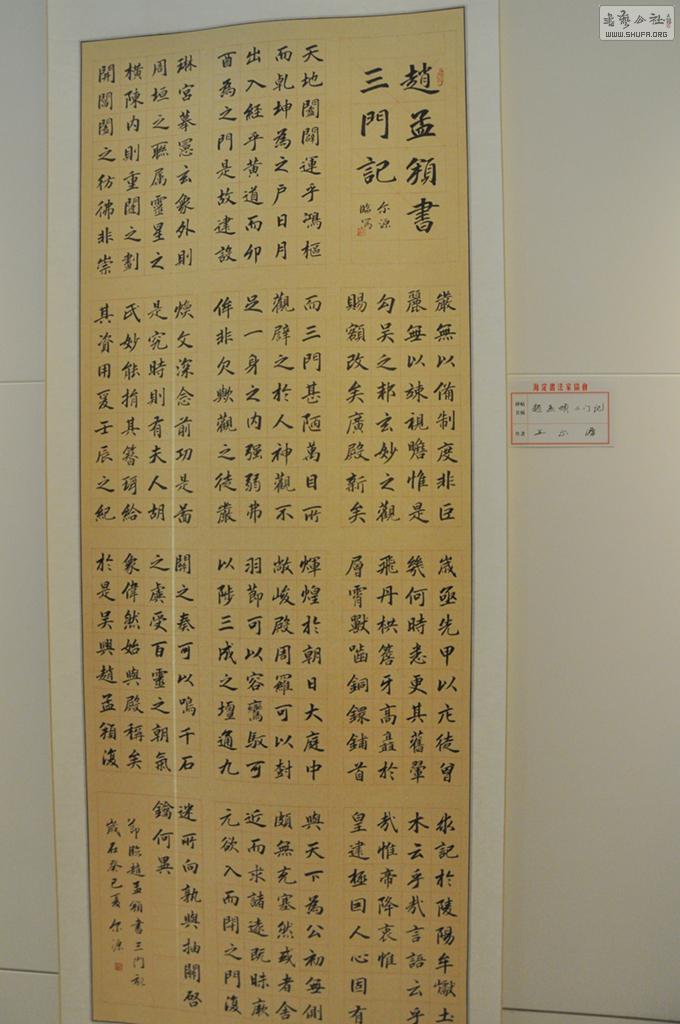 趙孟頫書
三門記
尔源
臨寫
天地闔闢運乎鴻樞
而乾坤為之戶日月
出入經乎黃道而卯
酉為之門是故建設
琳宮摹憲玄象外則
周垣之聯属靈星之
橫陳内則重闥之劃
開閶闔之彷彿非崇
嚴無以備制度非巨
麗無以竦視瞻惟是
勾吴之邦玄妙之觀
賜額改矣廣殿新矣
而三門甚陋萬目所
觀辟之於人神觀不
足一身之内强弱弗
侔非欠歟觀之徒嚴
煥文深念前功是啚
是究時則有夫人胡
氏妙能捐其簪珥給
其資用爰壬辰之紀
歳亟先甲以庀徒曾
幾何時悉更其舊翬
飛丹栱簷牙高矗於
層霄獸嚙銅鐶鋪首
輝煌於朝日大庭中
敞峻殿周羅可以封
羽節可以容鸞馭可
以陟三成之壇通九
關之奏可以鳴千石
之虡受百靈之朝氣
象偉然始與殿稱矣
於是吴興趙孟頫復
求記於陵陽牟巘土
木云乎哉言語云乎
哉惟帝降衷惟
皇建極因人心固有
與天下為公初無側
頗無充塞然或者舍
近而求諸遠既昧厥
元欲入而閉之門復
迷所向孰與抽關啓
鑰何異
節臨趙孟頫書三門記
歳在癸巳夏尔源
海淀書法家協會
趙孟頫《三门记》
作者 王尔源
WWW.SHUFA.ORG